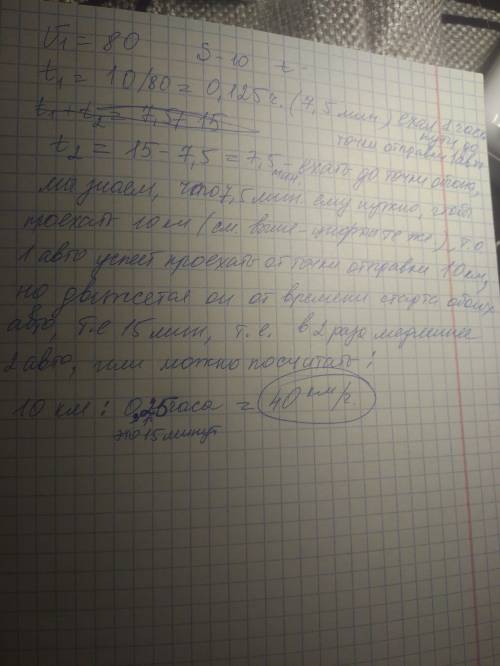 V1 = 80 S - 10 t -
t1 = 10/80 = 0,125 ч. (7,5 мин) ехал 2 часть пути до
t1 + t2 = 7,5 15 точки отправки 1 авто
t2 = 15 - 7,5 = 7,5 мин. - ехать до точки
мы знаем, что 7,5 мин. ему нужно, чтобы
проехать 10 км (см. выше - цифры те же), то
1 авто успеет проехать от точки отправки 10 км,
но движется он от времени старта обоих
авто, т.е 15 мин, т.е. в 2 раза медленнее
2 авто, или можно посчитать:
10 км : 0,25 часа = 40 км/ч
это 15 минут